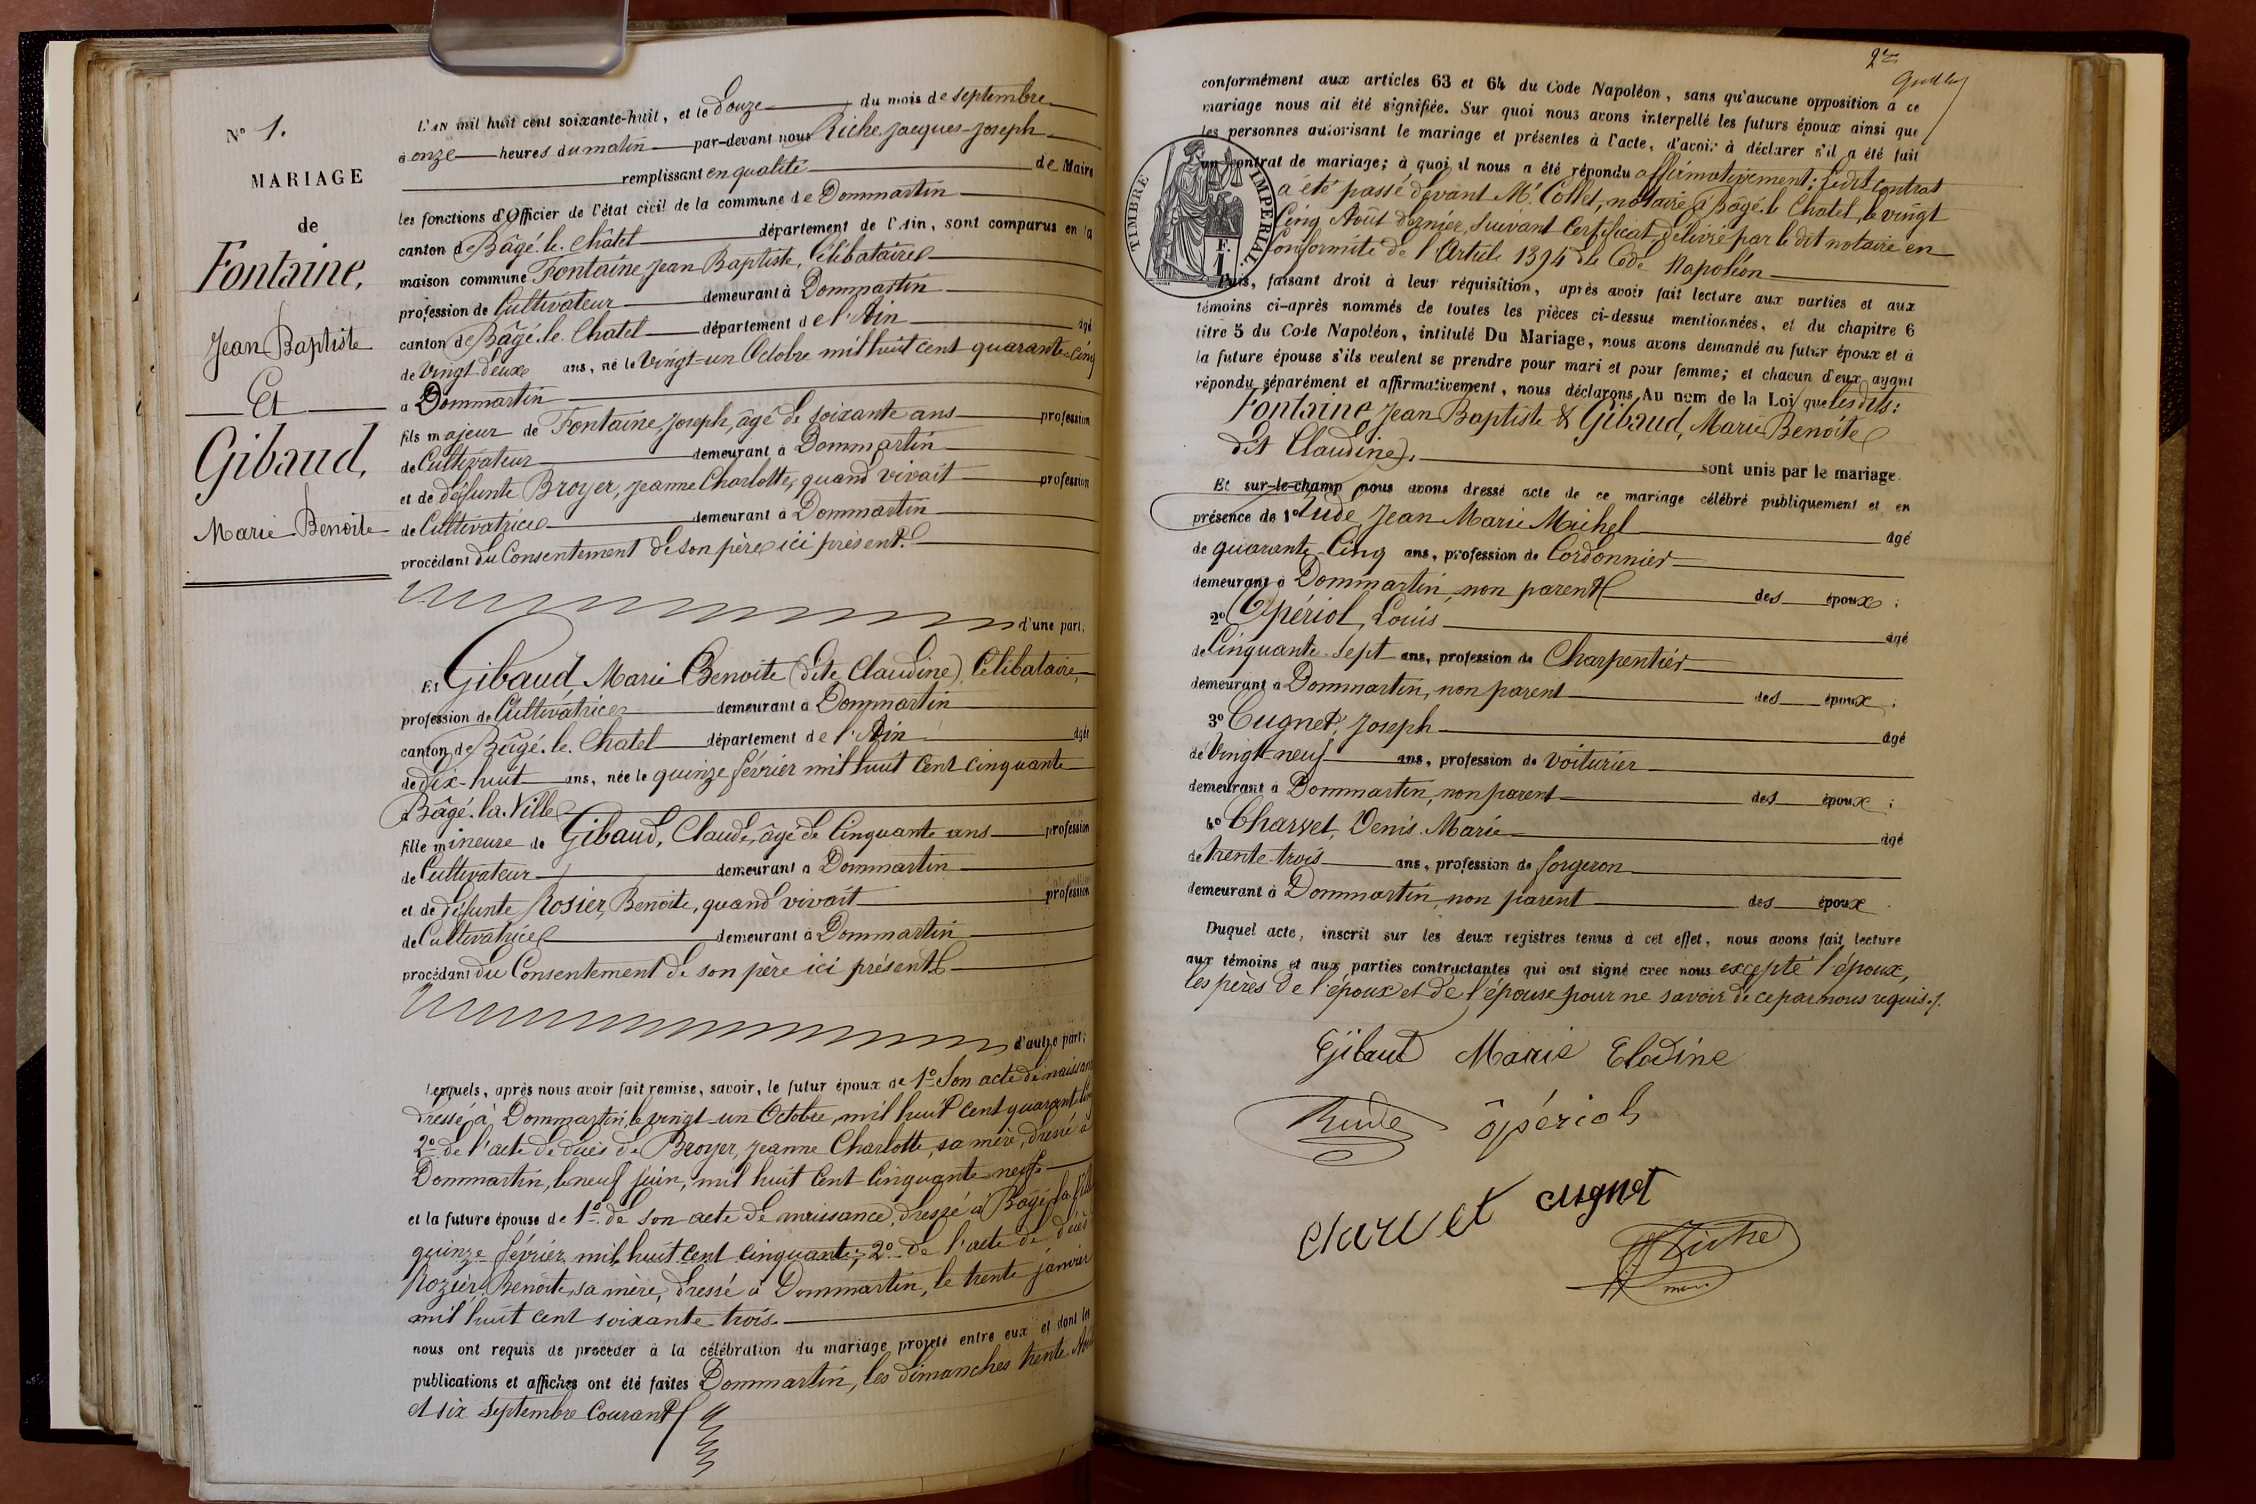 N° 1.
MARIAGE
de
Fontaine,
Jean Baptiste
Et
Gibaud,
Marie Benoite
L'AN mil huit cent soixante-huit, et le Douze du mois de septembre
à onze heures du matin par-devant nous Riche Jacques-Joseph
remplissant en qualité de Maire
les fonctions d'Officier de l'état civil de la commune de Dommartin
canton de Bâgé-le-Châtel département de l'Ain, sont comparus en la
maison commune Fontaine Jean Baptiste, Célibataire
profession de Cultivateur demeurant à Dommartin
canton de Bâgé-le-Chatel département de l'Ain âgé
de vingt deux ans, né le vingt-un Octobre mil huit cent quarante-cinq
à Dommartin
fils majeur de Fontaine Joseph, âgé de soixante ans profession
de Cultivateur demeurant à Dommartin
et de défunte Broyer, Jeanne Charlotte, quand vivait profession
de Cultivatrice demeurant à Dommartin
procédant du Consentement de son père ici présent.
d'une part;
Et Gibaud Marie Benoite (dite Claudine), Célibataire,
profession de Cultivatrice demeurant à Dommartin
canton de Bâgé-le-Chatel département de l'Ain âgée
de dix-huit ans, née le quinze février mil huit cent cinquante
à Bâgé-la-Ville
fille mineure de Gibaud, Claude, âgé de Cinquante ans profession
de Cultivateur demeurant à Dommartin
et de défunte Rosier, Benoite, quand vivait profession
de Cultivatrice demeurant à Dommartin
procédant du Consentement de son père ici présent
d'autre part;
Lesquels, après nous avoir fait remise, savoir, le futur époux de 1° Son acte de naissance
dressé à Dommartin, le vingt-un Octobre, mil huit cent quarante cinq
2° de l'acte de décès de Broyer, Jeanne Charlotte, sa mère, dressé à
Dommartin, le neuf juin, mil huit Cent Cinquante neuf.
et la future épouse de 1° de son acte de naissance, dressé à Bâgé la Ville
quinze février mil huit cent cinquante; 2° de l'acte de décès
Rozier, Benoite, sa mère, dressé à Dommartin, le trente janvier
mil huit cent soixante trois.
nous ont requis de procéder à la célébration du mariage projeté entre eux et dont les
publications et affiches ont été faites à Dommartin, les dimanches trente Août
et six Septembre Courant
conformément aux articles 63 et 64 du Code Napoléon, sans qu'aucune opposition à ce
mariage nous ait été signifiée. Sur quoi nous avons interpellé les futurs époux ainsi que
les personnes autorisant le mariage et présentes à l'acte, d'avoir à déclarer s'il a été fait
un contrat de mariage; à quoi il nous a été répondu affirmativement; Ledit Contrat
a été passé devant Mr. Collet, notaire à Bâgé-le Chatel, le vingt
Cinq Août dernier, suivant Certificat délivré par le dit notaire en
Conformité de l'Article 1394 du Code Napoléon
TIMBRE IMPERIAL.
1 F.
Puis, faisant droit à leur réquisition, après avoir fait lecture aux parties et aux
témoins ci-après nommés de toutes les pièces ci-dessus mentionnées, et du chapitre 6
titre 5 du Code Napoléon, intitulé Du Mariage, nous avons demandé au futur époux et à
la future épouse s'ils veulent se prendre pour mari et pour femme; et chacun d'eux ayant
répondu séparément et affirmativement, nous déclarons, Au nom de la Loi, que les dits:
Fontaine, Jean Baptiste & Gibaud, Marie Benoite
dit Claudine).
sont unis par le mariage.
Et sur-le-champ nous avons dressé acte de ce mariage célébré publiquement et en
présence de 1° Rude, Jean Marie Michel âgé
de quarante-Cinq ans, profession de Cordonnier
demeurant à Dommartin, non parent des époux;
2° Opériol, Louis âgé
de Cinquante-Sept ans, profession de Charpentier
demeurant à Dommartin, non parent des époux;
3° Cugnet, Joseph âgé
de Vingt-neuf ans, profession de voiturier
demeurant à Dommartin, non parent des époux;
4° Charvet, Denis-Marie âgé
de trente-trois ans, profession de forgeron
demeurant à Dommartin, non parent des époux.
Duquel acte, inscrit sur les deux registres tenus à cet effet, nous avons fait lecture
aux témoins et aux parties contractantes qui ont signé avec nous excepté l'époux,
les pères de l'époux et de l'épouse pour ne savoir de ce par nous requis.
Gibaud Marie Clodine
Rude opériol
charvet cugnet
Riche
maire